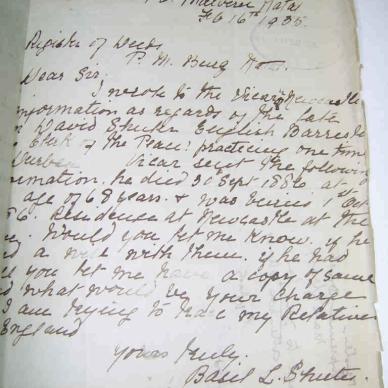 Malvern Natal
Feb 16th 1935.
Register of Deeds
P. M. Burg
Dear Sir,
I wrote to the Vicar Newcastle
information as regards of the late
David Shuter English Barrester
Clerk of the Peace: practicing one time
Durban Vicar sent the following
information. he died 30 Sept 1886 at
age of 68 years. & was buried 1 Oct
86. Residence at Newcastle at the
Would you let me know. if he
a will with them. if he had
you let me have a copy of same
what would be your charge
I am trying to trace my Relatives
England
Yours truly.
Basil L. Shuter.